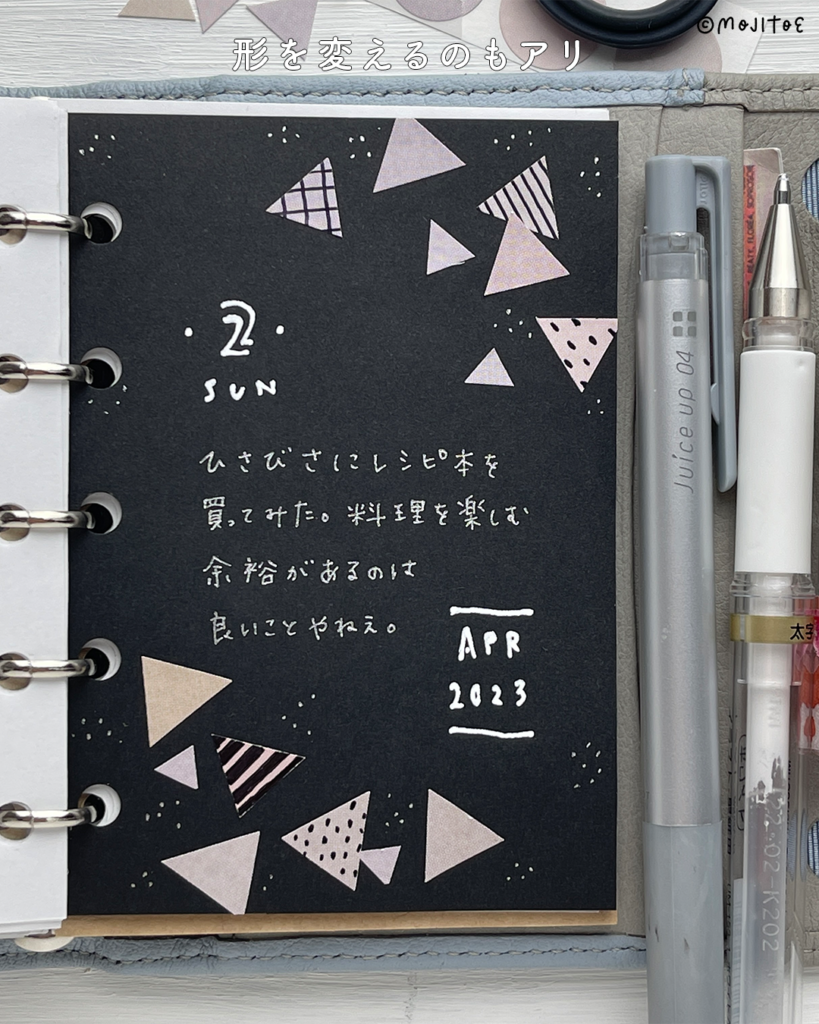 ©MOJITOE
形を変えるのもアリ
・2・
SUN
ひさびさにレシピ本を
買ってみた。料理を楽しむ
余裕があるのは
良いことやねえ。
APR
2023
Juice up 04
太字
K202